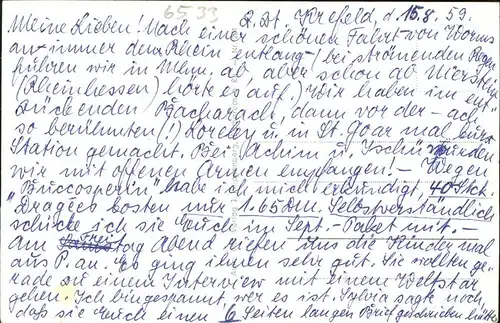 6533
z. Zt. Krefeld, d. 15.8.59.
Meine Lieben! Nach einer schönen Fahrt von Worms
an immer dem Rhein entlang (bei strömenden Regen
fuhren wir in Wenn. ab, aber schon ab Nierstein
(Rheinhessen) hörte es auf.) Wir haben im ent-
zückenden Bacharach, dann vor der - ach
so berühmten (!) Loreley u. in St. Goar mal kurz
Station gemacht. Bei Achim u. wurden
wir mit offenen Armen empfangen! - Wegen
"Buccosperin" habe ich mich erkundigt, 40 Stck.
"Dragées kosten nur 1.65 DM. Selbstverständlich
schicke ich sie Euch im Sept. - Paket mit. -
Am tag Abend riefen uns die Kinder mal
aus P. an. Es ging ihnen sehr gut. Sie wollten ge-
rade zu einem Interview mit einem Weltstar
gehen. Ich bin gespannt, wer es ist. Sylvia sagte noch,
daß sie Euch einen 6 Seiten langen Brief geschrieben hätte